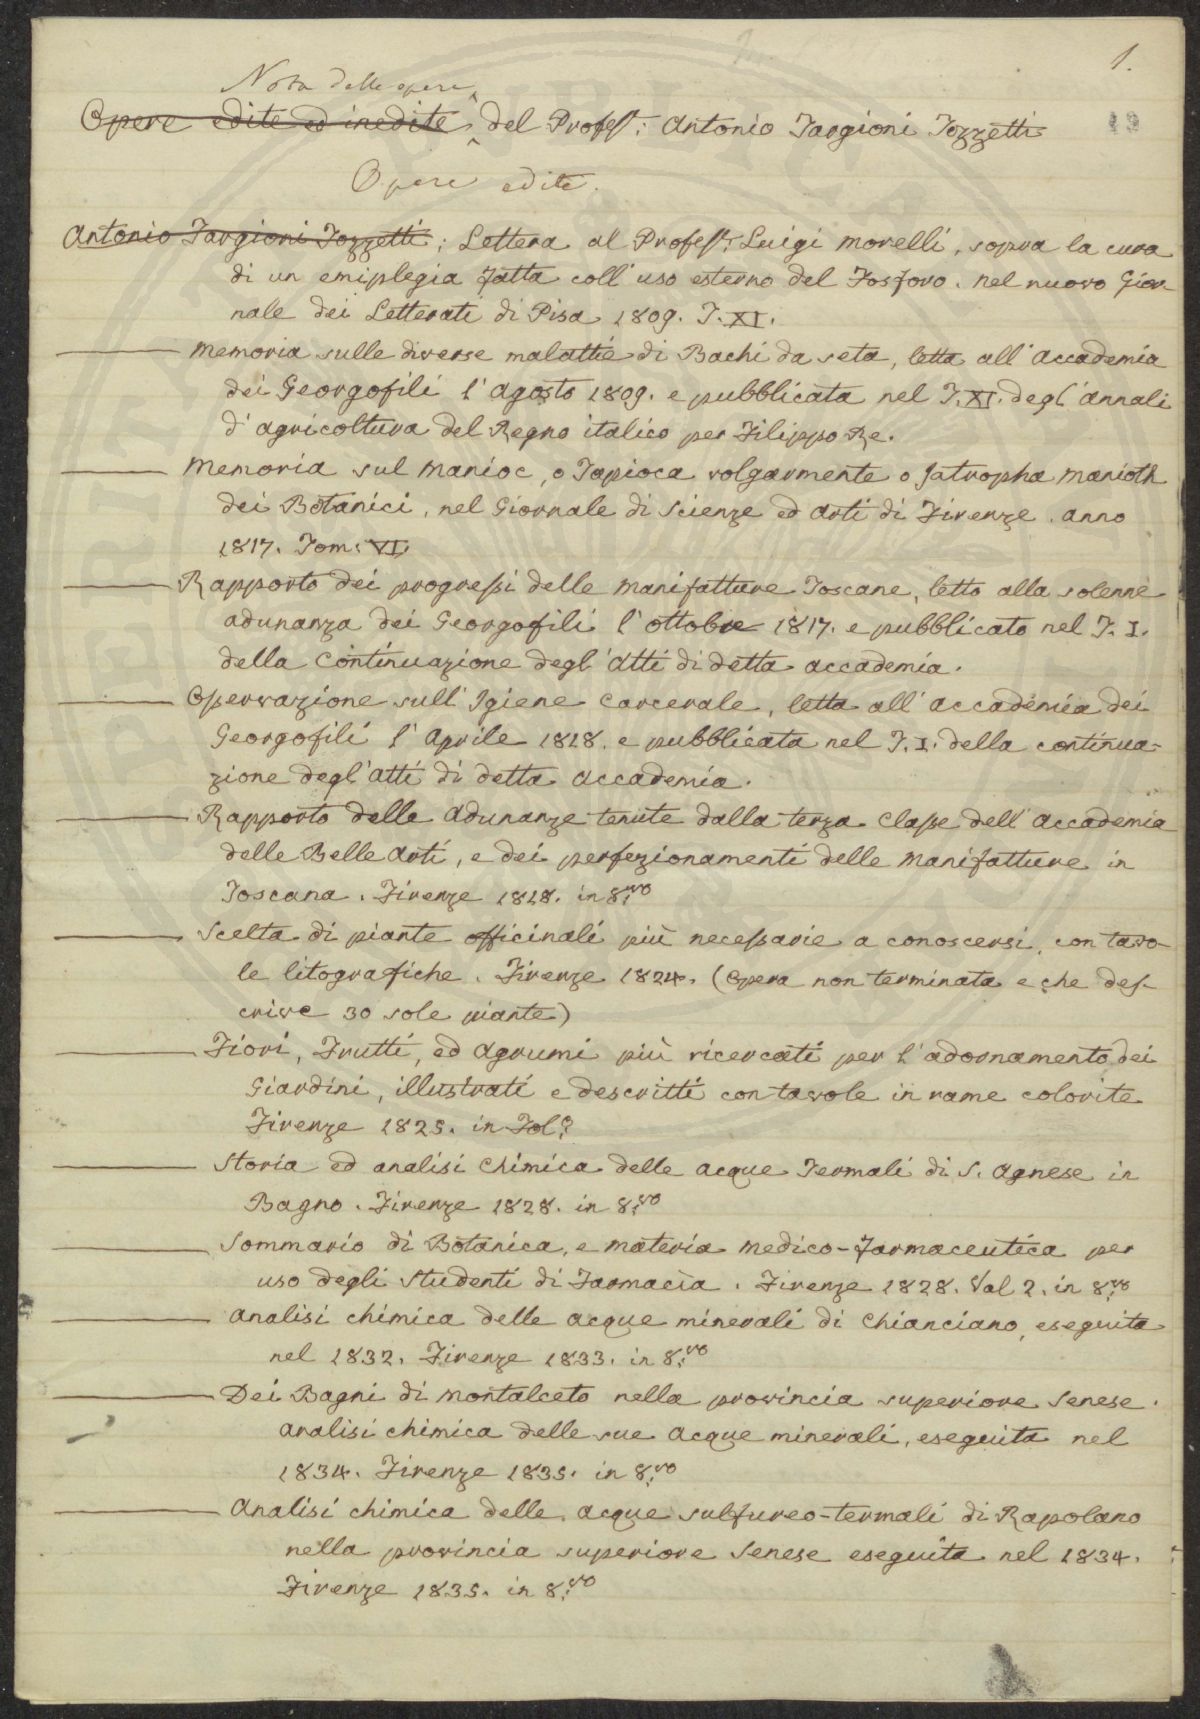 1.
Nota delle opere
Opere edite ed inedite del Profess: Antonio Targioni Tozzetti
19
Opere edite.
Antonio Targioni Tozzetti; Lettera al Profess: Luigi Morelli, sopra la cura
di un emiplegia fatta coll' uso esterno del Fosforo. nel nuovo Gior-
nale dei Letterati di Pisa 1809. T. XI.
Memoria sulle diverse malattie di Bachi da seta, letta all' Accademia
dei Georgofili l' Agosto 1809. e pubblicata nel T. XI. degl' annali
d' agricoltura del Regno italico per Filippo Re.
Memoria sul Manioc, o Tapioca volgarmente o Jatropha Manioth
dei Botanici, nel Giornale di Scienze ed Arti di Firenze. anno
1817. Tom: VI.
Rapporto dei progressi delle Manifatture Toscane, letto alla solenne
adunanza dei Georgofili l' ottobre 1817. e pubblicato nel T. I.
della Continuazione degl' Atti di detta Accademia.
Osservazione sull' Igiene Carcerale, letta all' Accademia dei
Georgofili l' Aprile 1818. e pubblicata nel T. I. della continua-
zione degl' Atti di detta Accademia.
Rapporto delle Adunanze tenute dalla terza Classe dell' Accademia
delle Belle Arti, e dei perfezionamenti delle Manifatture in
Toscana. Firenze 1818. in 8.vo
Scelta di piante officinali più necessarie a conoscersi, con tavo-
le litografiche. Firenze 1824. (Opera non terminata e che des-
crive 30 sole piante)
Fiori, Frutti, ed Agrumi più ricercati per l' adornamento dei
Giardini, illustrati e descritti con tavole in rame colorite
Firenze 1825. in Fol.o
Storia ed analisi Chimica delle acque Termali di S. Agnese in
Bagno. Firenze 1828. in 8.vo
Sommario di Botanica, e materia medico-farmaceutica per
uso degli Studenti di Farmacia. Firenze 1828. Vol 2. in 8.vo
Analisi chimica delle acque minerali di Chianciano, eseguita
nel 1832. Firenze 1833. in 8.vo
Dei Bagni di Montalceto nella provincia superiore Senese.
Analisi chimica delle sue Acque minerali, eseguita nel
1834. Firenze 1835. in 8.vo
Analisi chimica delle acque sulfureo-termali di Rapolano
nella provincia superiore Senese eseguita nel 1834.
Firenze 1835. in 8.vo